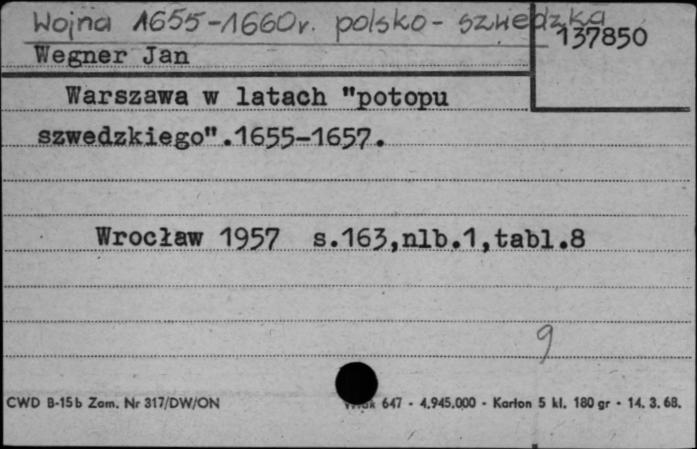 Wojna 1655-1660r. polsko-szwedzka
137850
Wegner Jan
Warszawa w latach "potopu
szwedzkiego".1655-1657.
Wrocław 1957 s.163,nlb.1,tabl.8
9
CWD B-15b Zam. Nr 317/DW/ON
647 - 4.945.000 - Karton 5 kl. 180 gr - 14. 3. 68.